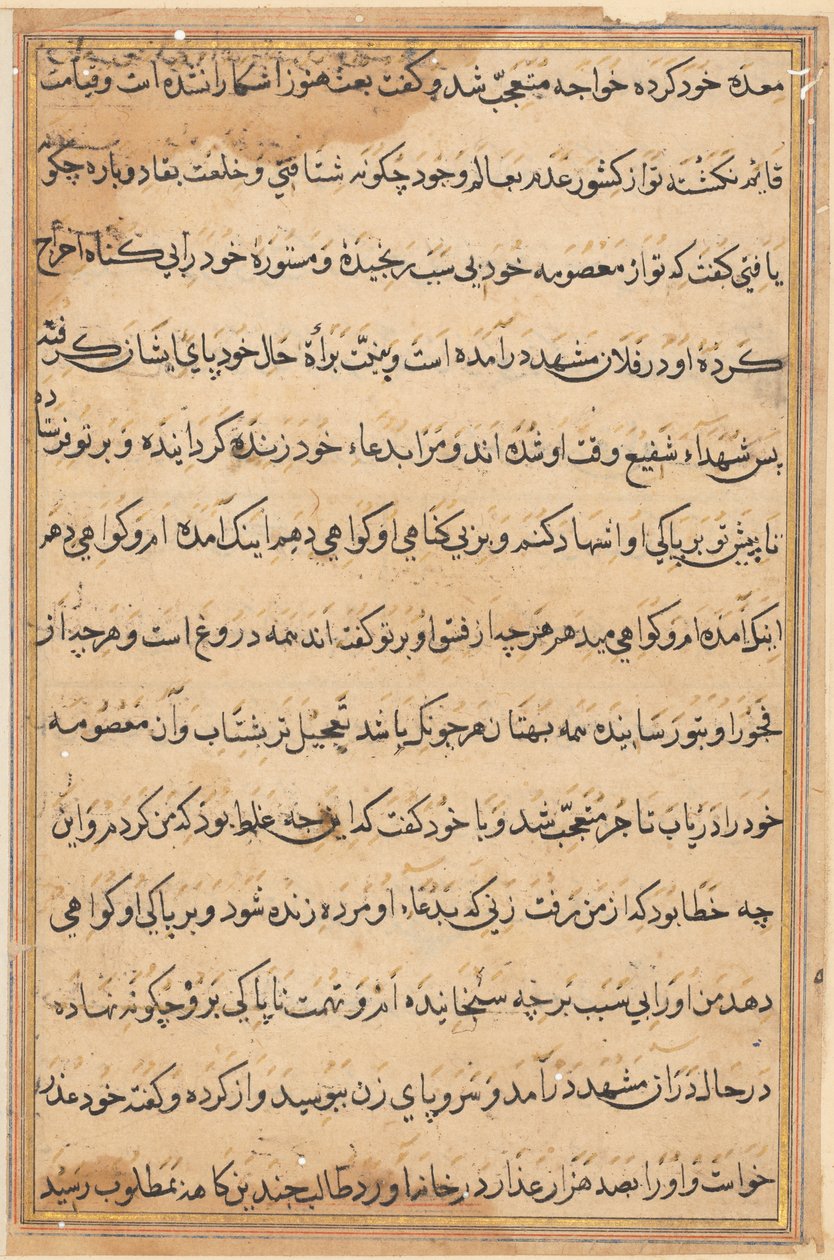 معده خود کرده خواجه متعجّب شد و گفت بعث هنوز اشکارا نشده است و قیامت
قایم نکشته تو از کشور عدم بعالم وجود چکونه شتافتی و خلعت بقا دوباره چکونه
یافتی کفت که تو از معصومه خود بی سبب رنجیدهٔ و مستورهٔ خود را بی کناه اخراج
کردهٔ او در فلان مشهد درآمده است و بنیّت برأة حال خود پای ایشان کرفته
پس شهداء شفیع وقت او شده اند و مرا بدعاء خود زنده کردانیده و بر تو فرستاده
تا پیش تو بر پاکی او اشهاد کنم و بر بی کناهی او کواهی دهم اینک آمده ام و کواهی دهم
اینک آمده ام و کواهی میدهم هر چه از فسق او بر تو کفته اند همه دروغ است و هر چه از
فجور او بتو رسانیده همه بهتان هر چونک باشد تعجیل تر بشتاب و آن معصومه
خود را دریاب تاجر متعجّب شد و با خود کفت که این چه غلط بود که من کردم و این
چه خطا بود که از من رفت زنی که بدعاء او مرده زنده شود و بر پاکی او کواهی
دهد من او را بی سبب بر چه سنجانیده ام و تهمت ناپاکی برو چکونه نهاده
در حال در ان مشهد درآمد و سر و پای زن ببوسید و از کرده و کفته خود عذر
خواست و او را بصد هزار عذار در خانه اورد طالب چندین کاهه بمطلوب رسید